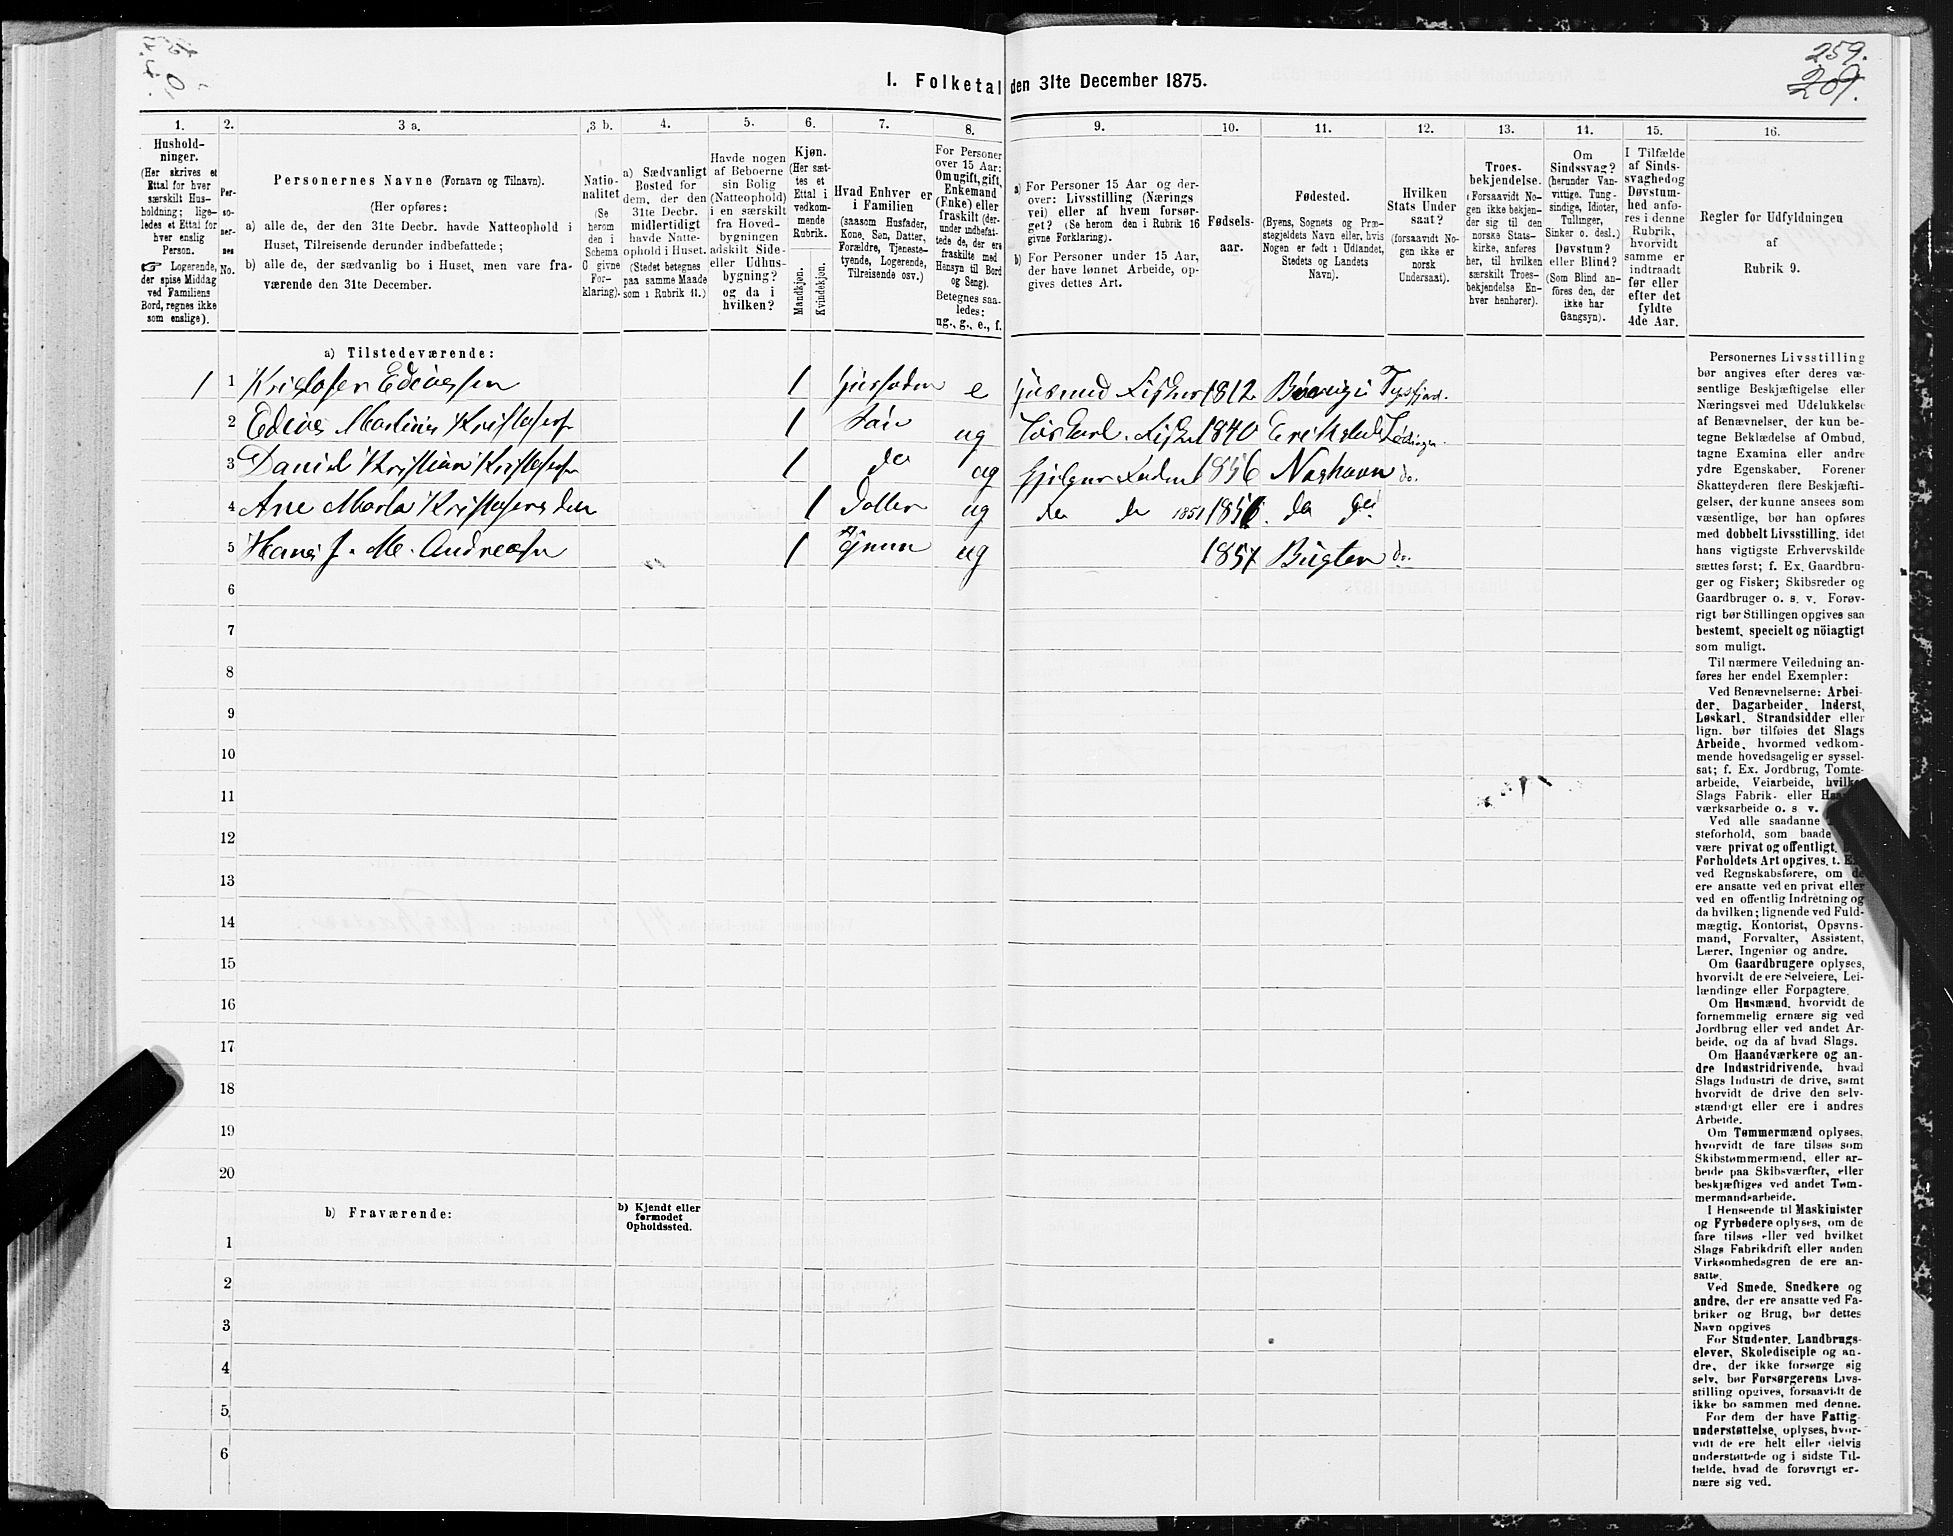 259.
209.
I. Folketal den 31te December 1875.
1.
Hushold-
ninger.
(Her skrives et
Ettal for hver
særskilt Hus-
holdning; lige-
ledes et Ettal for
hver enslig
Person.
☞ Logerende,
der spise Middag
ved Familiens
Bord, regnes ikke
som enslige).
2.
Per-
so-
ner-
nes
No.
3 a.
Personernes Navne (Fornavn og Tilnavn).
(Her opføres:
a) alle de, der den 31te Decbr. havde Natteophold i
Huset, Tilreisende derunder indbefattede;
b) alle de, der sædvanlig bo i Huset, men vare fra-
værende den 31te December.
3 b.
Natio-
nalitet
(Se
herom
den i
Schema
0 givne
For-
klaring).
4.
a) Sædvanligt
Bosted for
dem, der den
31te Decbr.
midlertidigt
havde Natte-
ophold i Huset.
(Stedet betegnes
paa samme Maade
som i Rubrik 11.)
5.
Havde nogen
af Beboerne
sin Bolig
(Natteophold)
i en særskilt
fra Hoved-
bygningen
adskilt Side-
eller Udhus-
bygning?
og da i
hvilken?
6.
Kjøn.
(Her sæt-
tes et
Ettal i
vedkom-
mende
Rubrik.
Mandkjøn.
Kvindekjøn.
7.
Hvad Enhver er
i Familien
(saasom Husfader,
Kone, Søn, Datter,
Forældre, Tjeneste-
tyende, Logerende,
Tilreisende osv.)
8.
For Personer
over 15 Aar:
Om ugift, gift,
Enkemand
(Enke) eller
fraskilt (der-
under indbefat-
tede de, der ere
fraskilte med
Hensyn til Bord
og Seng).
Betegnes saa-
ledes:
ug., g., e., f.
9.
a) For Personer 15 Aar og der-
over: Livsstilling (Nærings
vei) eller af hvem forsør-
get? (Se herom den i Rubrik 16
givne Forklaring).
b) For Personer under 15 Aar,
der have lønnet Arbeide, op-
gives dettes Art.
10.
Fødsels-
aar.
11.
Fødested.
(Byens, Sognets og Præ-
stegjeldets Navn eller, hvis
Nogen er født i Udlandet,
Stedets og Landets
Navn).
12.
Hvilken
Stats Under
saat?
(forsaavidt No-
gen ikke er
norsk
Undersaat).
13.
Troes-
bekjendelse.
(Forsaavidt No-
gen ikke bekjen-
der sig til den
norske Stats-
kirke, anføres
her, til hvilken
særskilt Troes-
bekjendelse En-
hver henhører).
14.
Om
Sindssvag?
(herunder Van-
vittige, Tung-
sindige, Idioter,
Tullinger,
Sinker o. desl.)
Døvstum?
eller Blind?
(Som Blind an-
føres den, der
ikke har
Gangsyn).
15.
I Tilfælde
af Sinds-
svaghed og
Døvstum-
hed anfø-
res i denne
Rubrik,
hvorvidt
samme er
indtraadt
før eller
efter det
fyldte
4de Aar.
16.
Regler for Udfyldningen
af
Rubrik 9.
a) Tilstedeværende:
1 1 Kristofer Edisessen 1 Husfader e Husmand Fisker 1812 Tysfjord.
2 Martinus Kristofers 1 Søn ug Løskarl. Fisker 1840 Erikstad Lødingen
3 Daniel Kristian Kristofers 1 do ug Hjelper Faderen 1856 Nashavn do.
4 Ane Marta Kristofersdtr 1 Datter ug do do 1851 do do
5 Hans J. M. Andreasen 1 ug 1857 Bugten do.
6
7
8
9
10
11
12
13
14
15
16
17
18
19
20
b) Fraværende:
b) Kjendt eller
formodet
Opholdssted.
1
2
3
4
5
6
Personernes Livsstilling
bør angives efter deres væ-
sentlige Beskjæftigelse eller
Næringsvei med Udelukkelse
af Benævnelser, der kun be-
tegne Beklædelse af Ombud,
tagne Examina eller andre
ydre Egenskaber. Forener
Skatteyderen flere Beskjæfti-
gelser, der kunne ansees som
væsentlige, bør han opføres
med dobbelt Livsstilling, idet
hans vigtigste Erhvervskilde
sættes først; f. Ex. Gaardbru-
ger og Fisker; Skibsreder og
Gaardbruger o. s. v. Forøv-
rigt bør Stillingen opgives saa
bestemt, specielt og nöiagtigt
som muligt.
Til nærmere Veiledning an-
føres her endel Exempler:
Ved Benævnelserne: Arbei-
der, Dagarbeider, Inderst,
Løskarl, Strandsidder eller
lign. bør tilføies det Slags
Arbeide, hvormed vedkom-
mende hovedsagelig er syssel-
sat; f. Ex. Jordbrug, Tomte-
arbeide, Veiarbeide, hvilke
Slags Fabrik- eller
værksarbeide o. s. v.
Ved alle saadanne
steforhold, som baade
være privat og offentligt,
Forholdets Art opgives, t. Ex
ved Regnskabsførere, om de
ere ansatte ved en privat eller
ved en offentlig Indretning og
da hvilken; lignende ved Fuld-
mægtig, Kontorist, Opsyns-
mand, Forvalter, Assistent,
Lærer, Ingeniør og andre.
Om Gaardbrugere oplyses,
hvorvidt de ere Selveiere, Lei-
lændinge eller Forpagtere.
Om Husmænd, hvorvidt de
fornemmelig ernære sig ved
Jordbrug eller ved andet Ar-
beide, og da af hvad Slags.
Om Haandværkere og an-
dre Industridrivende, hvad
Slags Industri de drive, samt
hvorvidt de drive den selv-
stændigt eller ere i andres
Arbeide.
Om Tømmermænd oplyses,
hvorvidt de fare tilsøs som
Skibstømmermænd, eller ar-
beide paa Skibsværfter, eller
beskjæftiges ved andet Tøm-
mermandsarbeide.
I Henseende til Maskinister
og Fyrbødere oplyses, om de
fare tilsøs eller ved hvilket
Slags Fabrikdrift eller anden
Virksomhedsgren de ere an-
satte.
Ved Smede, Snedkere og
andre, der ere ansatte ved Fa-
briker og Brug, bør dettes
Navn opgives
For Studenter, Landbrugs-
elever, Skoledisciple og an-
dre, der ikke forsørge sig
selv, bør Forsørgerens Livs-
stilling opgives, forsaavidt de
ikke bo sammen med denne.
For dem der have Fattig-
understøttelse, oplyses, hvor-
vidt de ere helt eller delvis
understøttede og i sidste Til-
fælde, hvad de forøvrigt er-
nære sig ved.